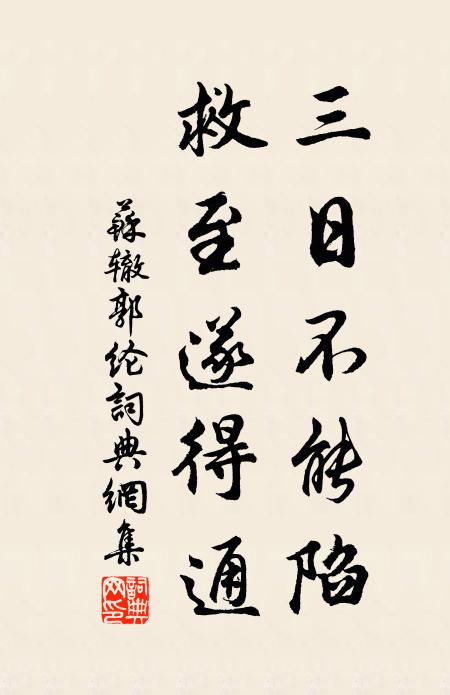 三日不能陷
救至遂得通
蘇辙郭纶詞典網集
詞典网印